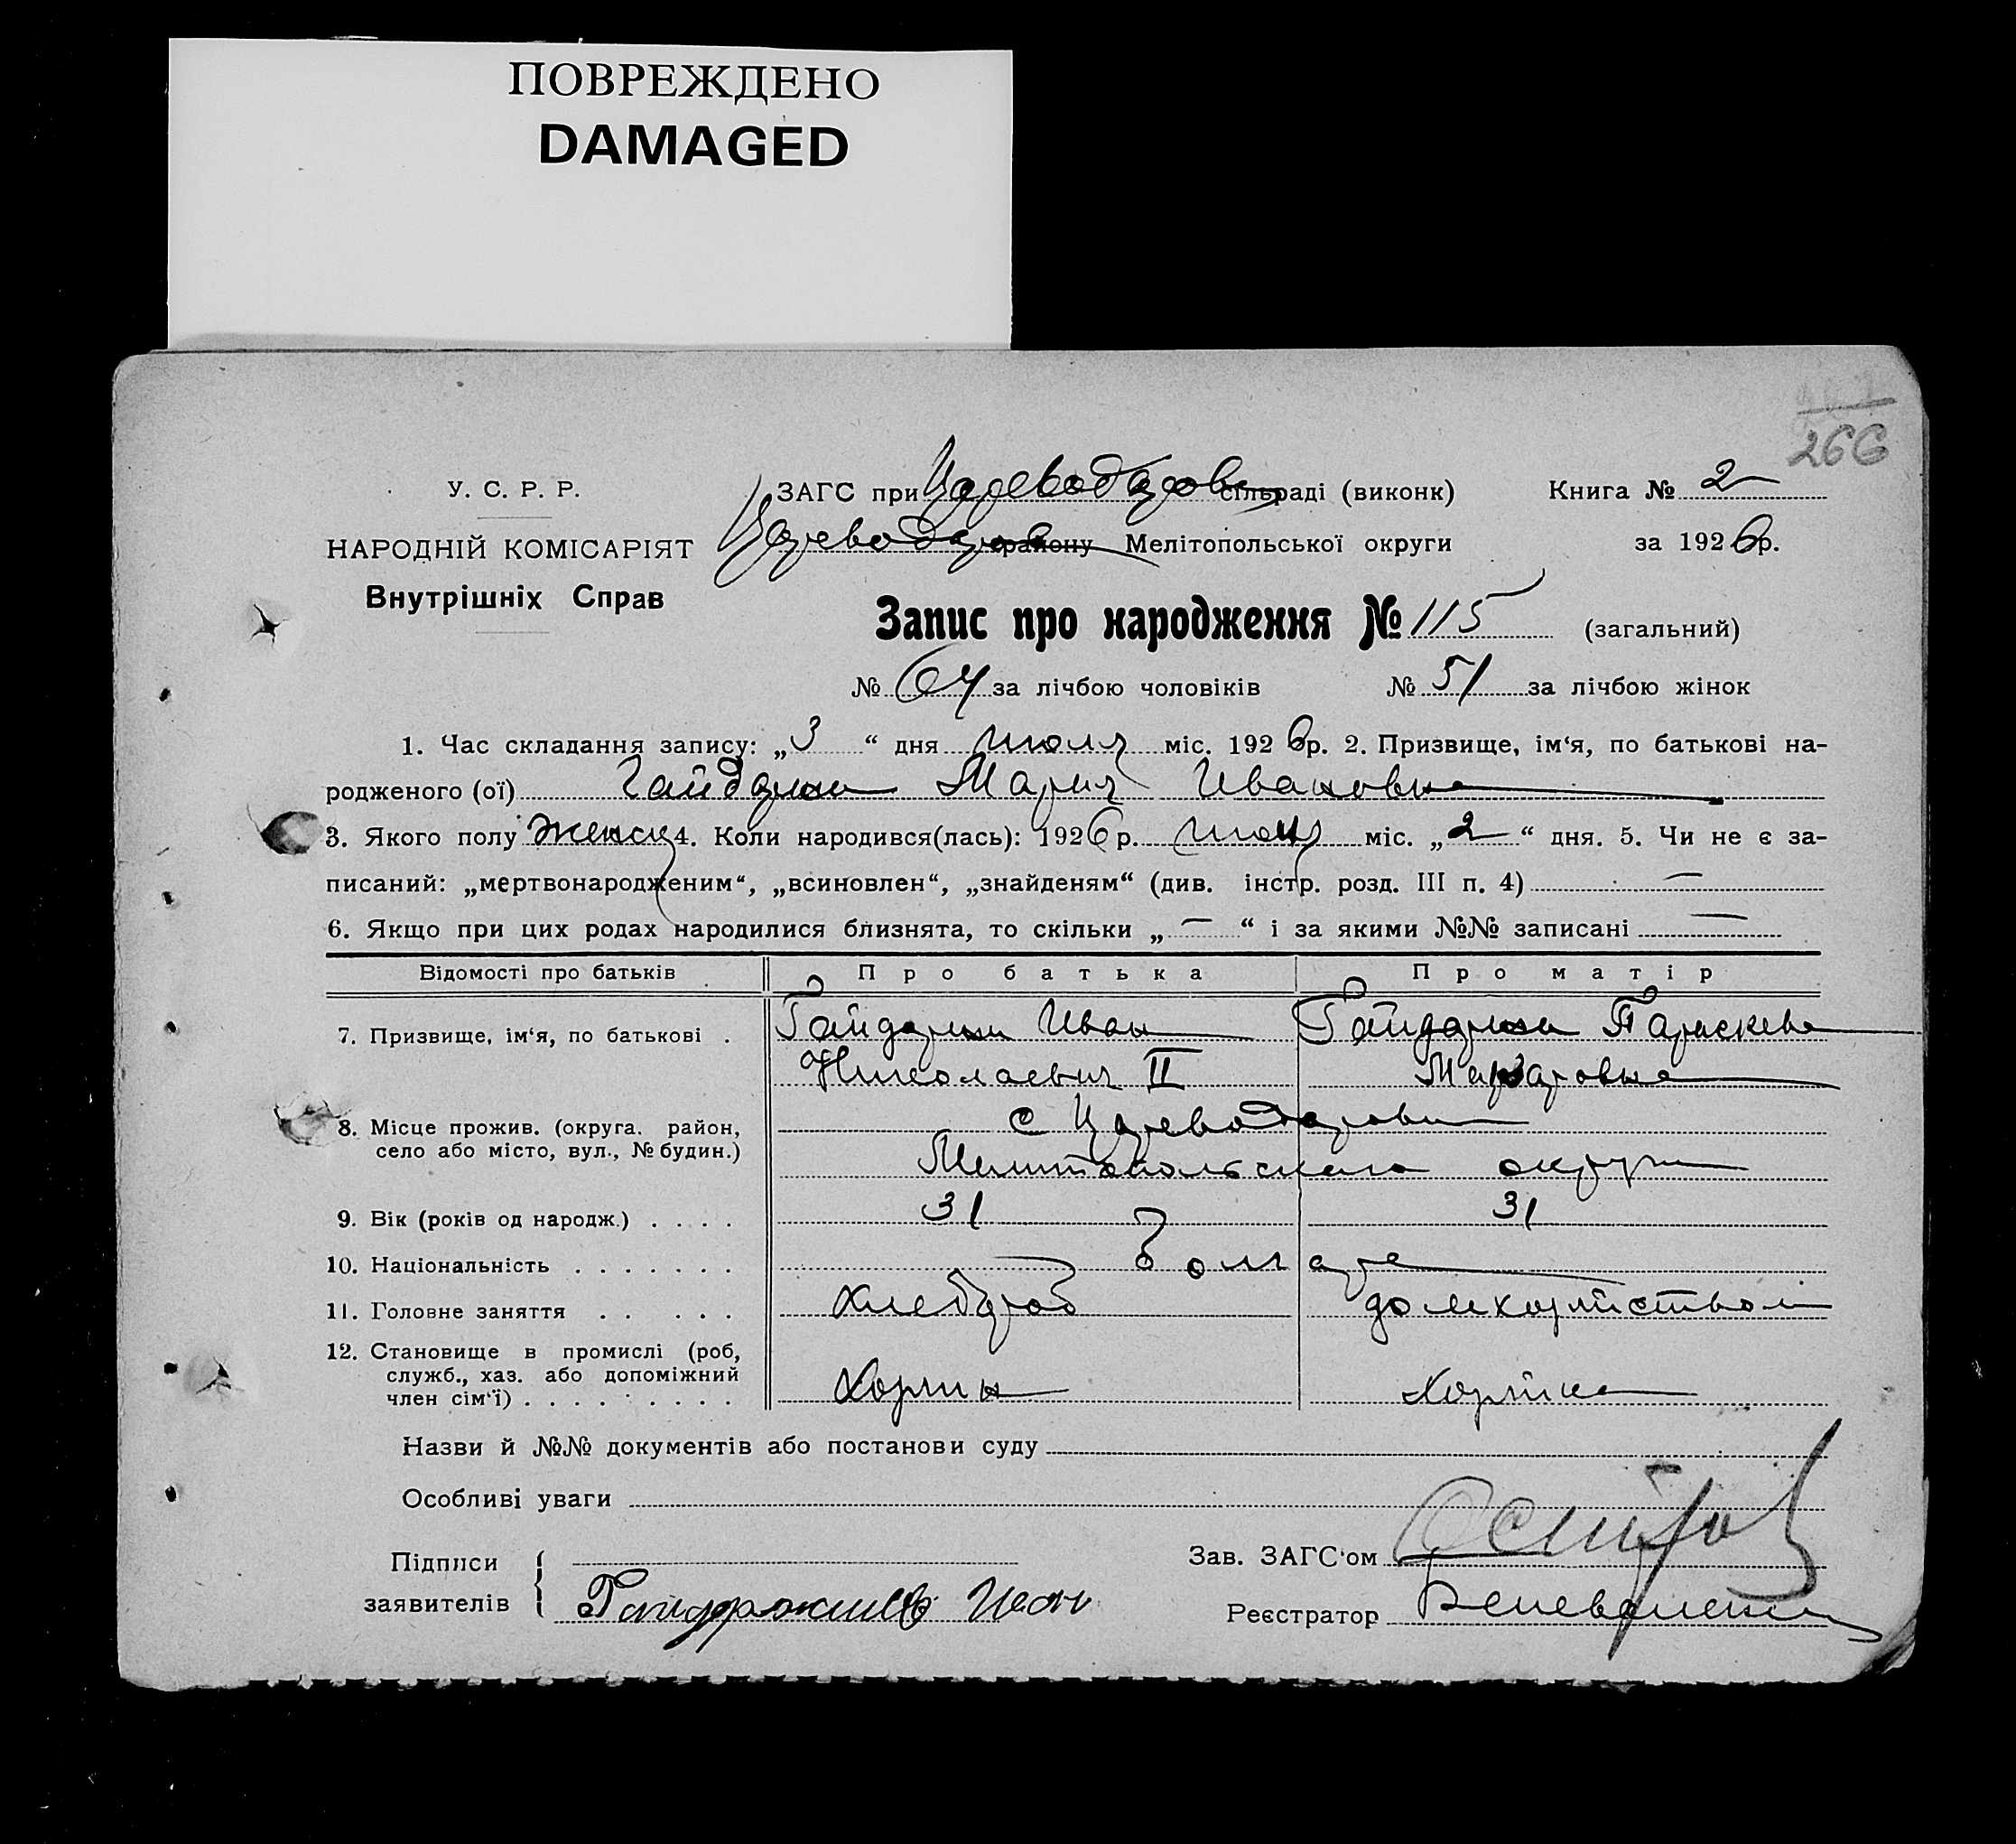 ПОВРЕЖДЕНО
DAMAGED
266
У. С. Р. Р.
НАРОДНІЙ КОМІСАРІЯТ
Внутрішніх Справ
ЗАГС при Цареводаров сільраді (виконк)
Цареводаров району Мелітопольської округи
Книга № 2
за 1926 р.
Запис про народження № 115 (загальний)
№ 64 за лічбою чоловіків № 51 за лічбою жінок
1. Час складання запису: „3“ дня июля міс. 1926 р. 2. Призвище, ім‘я, по батькові на-
родженого (ої) Мария Ивановна
3. Якого полу женск 4. Коли народився(лась): 1926 р. міс. „2“ дня. 5. Чи не є за-
писаний: „мертвонародженим“, „всиновлен“, „знайденям“ (див. інстр. розд. III п. 4) —
6. Якщо при цих родах народилися близнята, то скільки „—“ і за якими №№ записані —
Відомості про батьків Про батька Про матір
7. Призвище, ім‘я, по батькові . Иван Параскева
Николаевич II
8. Місце прожив. (округа, район,
село або місто, вул., № будин.)
с Цареводаровки
Мелитопольского округи
9. Вік (років од народж.) . . . . 31 31
10. Національність . . . . . . . болгаре
11. Головне заняття . . . . . Хлебороб
12. Становище в промислі (роб,
служб., хаз. або допоміжний
член сім‘ї) . . . . . . . .
Назви й №№ документів або постанови суду
Особливі уваги
Підписи
заявителів Иван
Зав. ЗАГС‘ом
Реєстратор